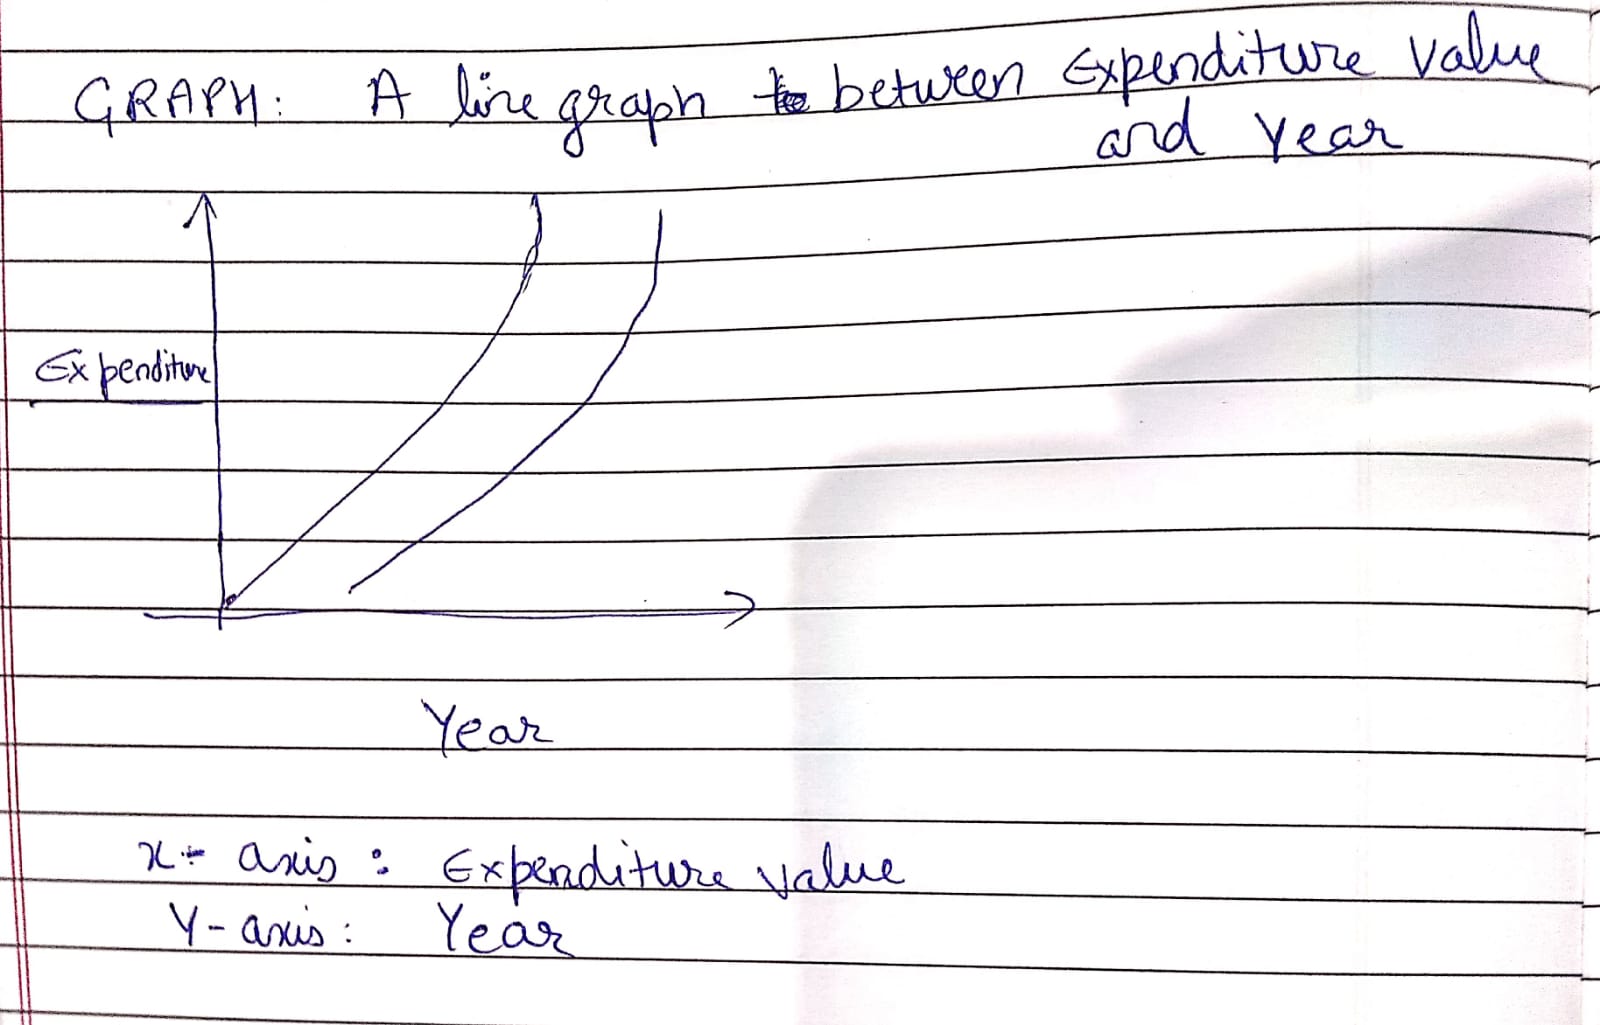 GRAPH: A line graph between Expenditure Value
and Year
Expenditure
Year
x- axis : Expenditure value
Y-axis: Year